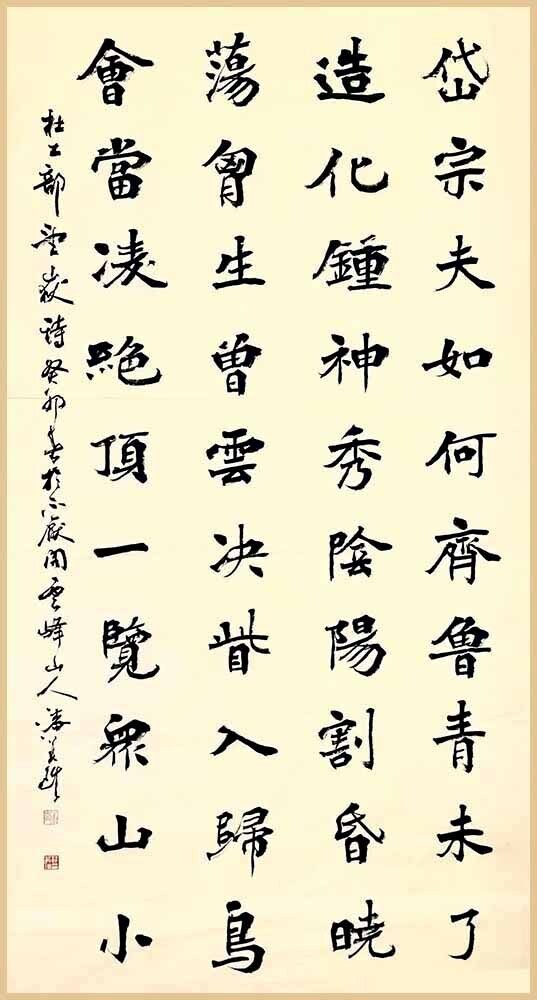 岱宗夫如何齊魯青未了
造化鍾神秀陰陽割昏曉
蕩胷生曾雲决眥入歸鳥
會當凌絶頂一覽衆山小
杜工部望嶽詩癸卯春於不厭閣雲峰山人